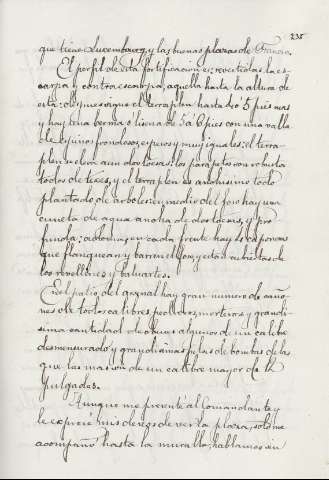 235
que tiene Luxembourg y las buenas plazas de Francia.
El perfil de esta fortificacion es: revestidas la es-
carpa y contraescarpa, aquella hasta la altura de
esta: despues sigue el terraplen hasta dos ó 5 pies mas
y hay una berma ó lisera de 5 á 6 pies con una valla
de espinos frondosos, espesos y muy iguales: el terra-
plen se eleva aun dos toesas: los parapetos son robustos
todos de tepes, y el terraplen es anchisimo todo
plantado de arboles: en medio del foso hay una
cuneta de agua ancha de dos toesas, y pro
funda: ademas en cada frente hay caponeras
que flanquean y barren el foso y estan cubiertas de
los revellines y baluartes.
En el patio del arsenal hay gran numero de caño-
nes de todos calibres, pedreros, morteros y grandi-
sima cantidad de obuses algunos de un calibre
desmensurado y grandisimas pilas de bombas de las
que las mas son de un calibre mayor de 14
pulgadas.
Aunque me presenté al Comandante y
le expresé mis deseos de ver la plaza, solo me
acompañó hasta la muralla, hablamos un